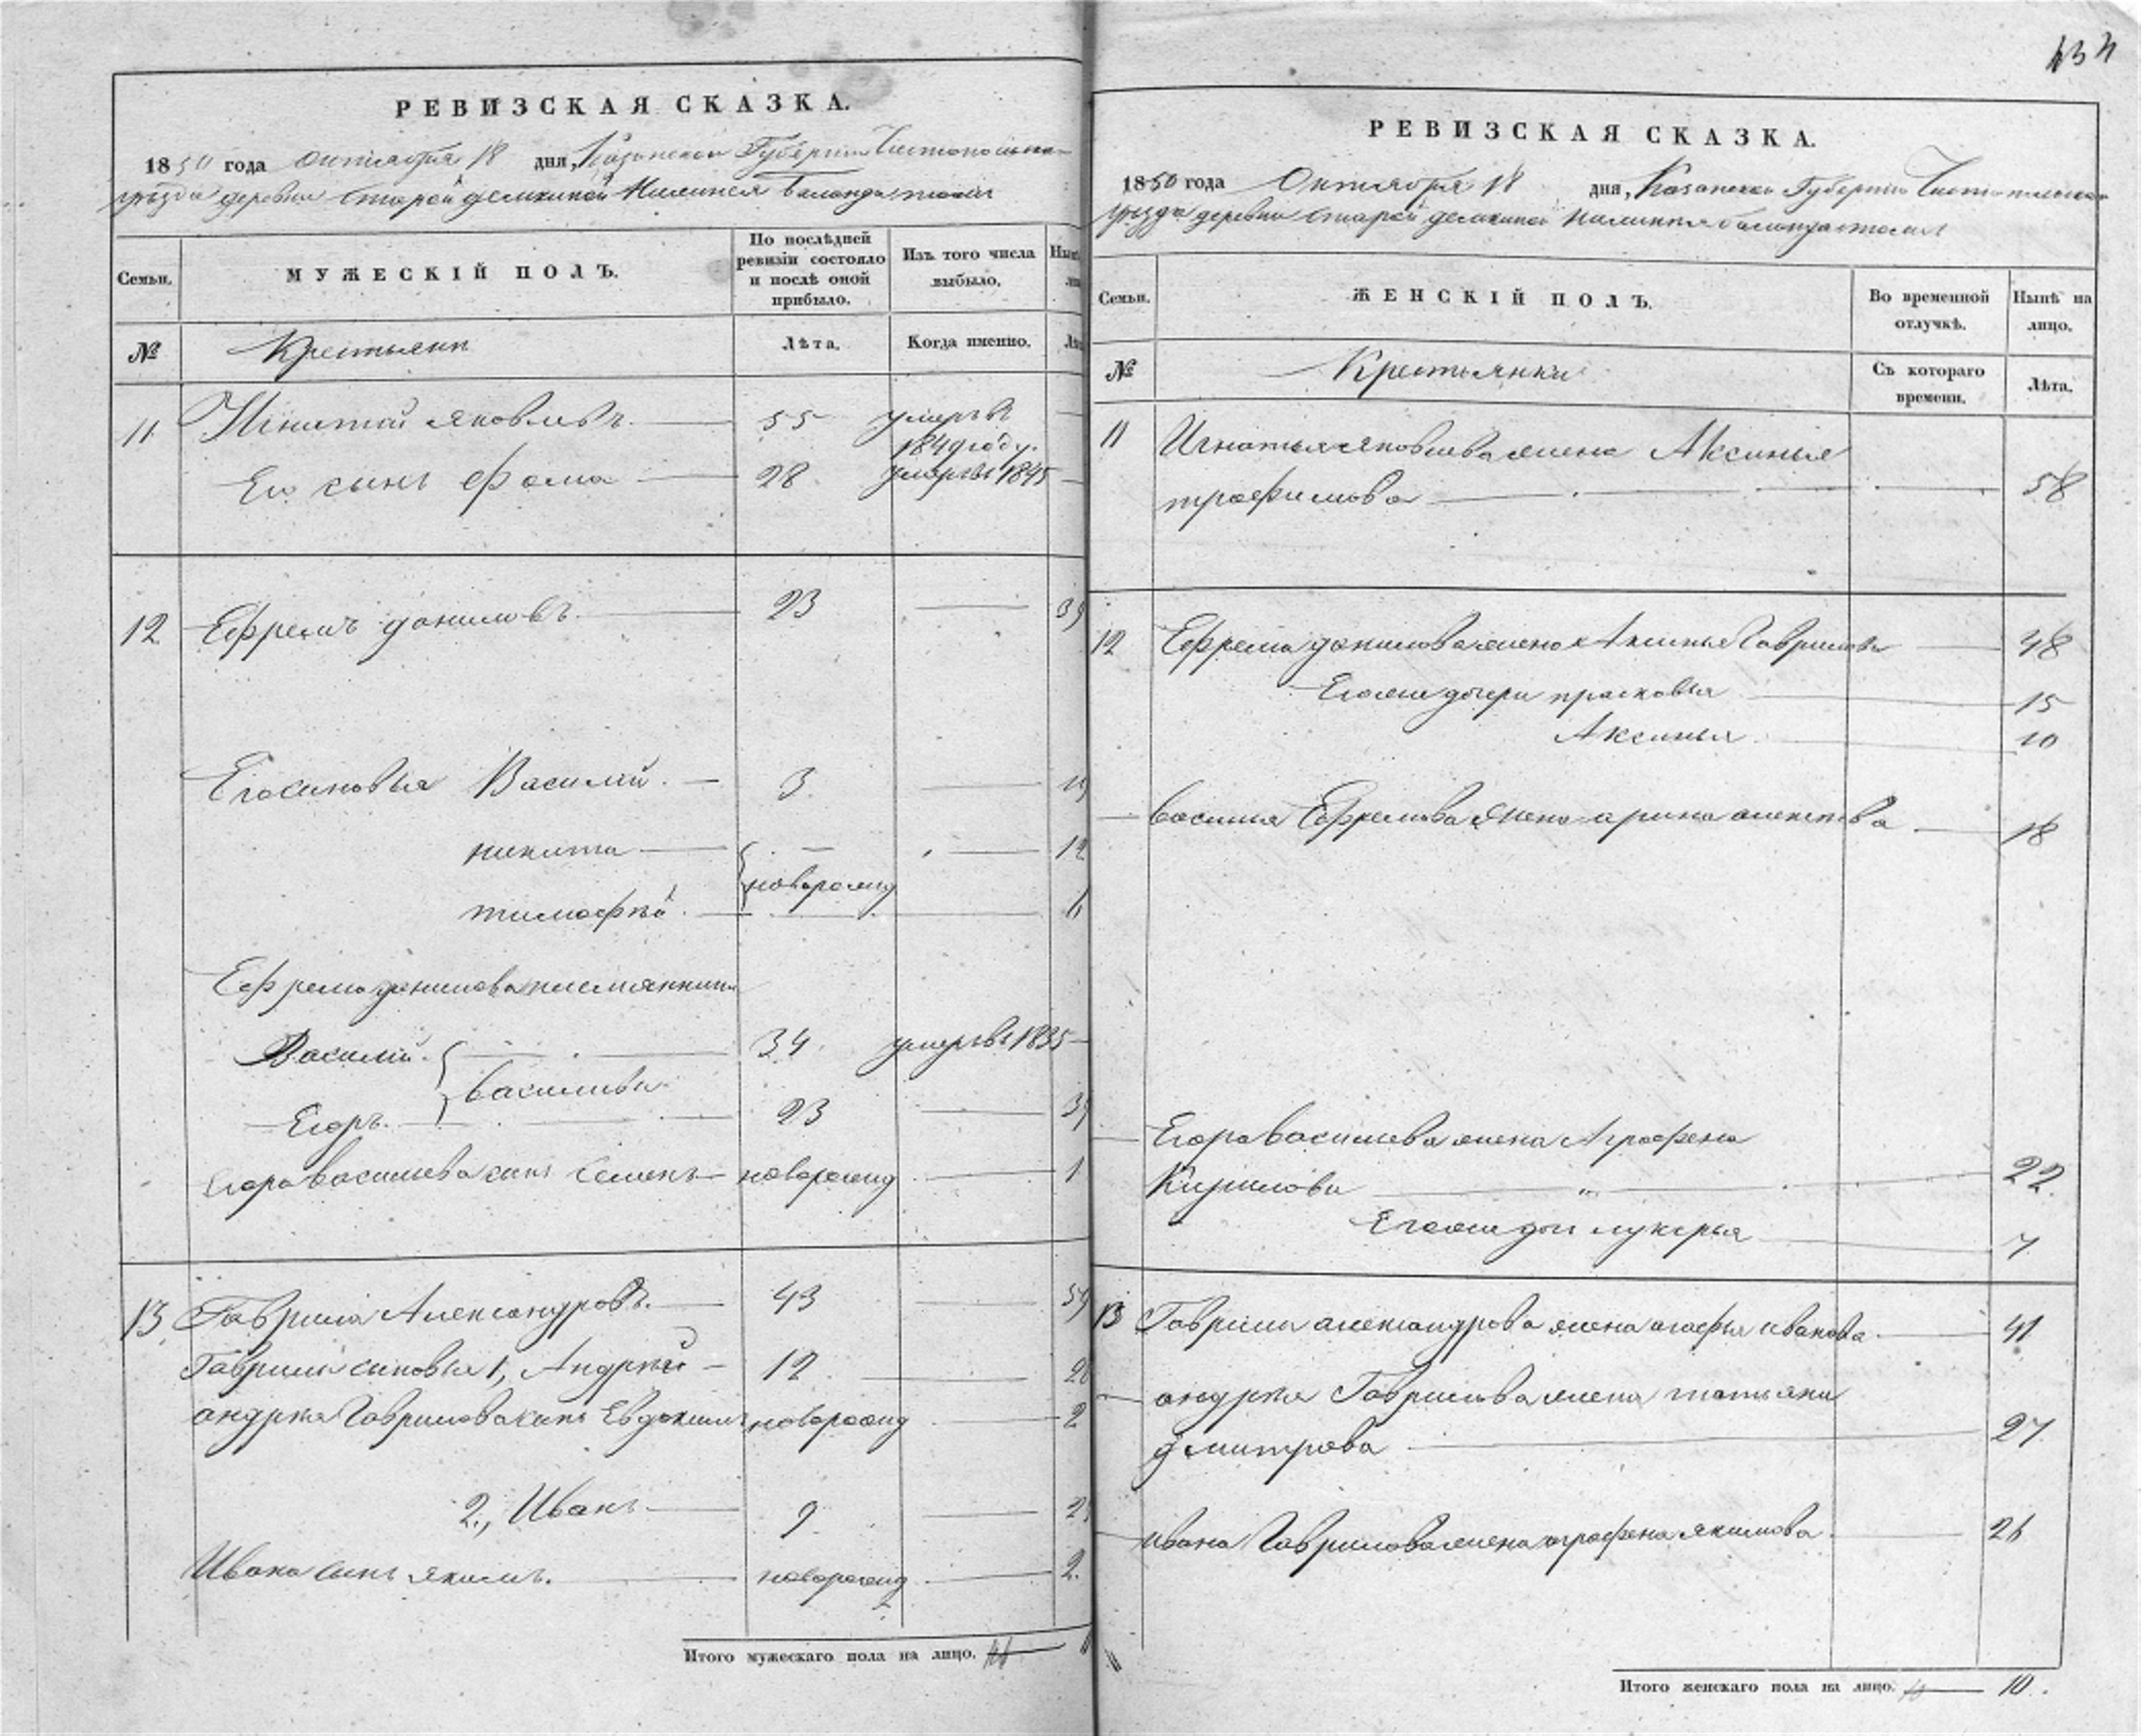 РЕВИЗСКАЯ СКАЗКА.
1850 года октября 18 дня, Казанской Губернии Чистопольска-
уѣзда деревни Старой демкиной
Семьи.
МУЖЕСКІЙ ПОЛЪ.
По послѣдней ревизіи состояло и послѣ оной прибыло.
Изъ того числа выбыло.
№
Крестьяни
Лѣта.
Когда именно.
11 Игнатий яковлевъ 55 умеръ въ
1849 году.
Его сынъ Фома 28 умеръ въ 1845
12 Ефремъ даниловъ 23
Его синовья Василий 3
никита 12
новорожд
тимофѣй 6
Ефрема данилова племянники
Василий 34 умеръ въ 1835
василиевы
Егоръ 23
Егора васильева сынъ Семенъ новорожд 1
13 Гаврила Александровъ 43 59
Гаврилы сыновья 1, Андрѣй 12
андрея Гаврилова сынъ Евдокимъ новорожд 2
2., Иванъ 9
Ивана сынъ якимъ. новорожд 2.
Итого мужескаго пола на лицо.
434
РЕВИЗСКАЯ СКАЗКА.
1850 года Октября 18 дня, Казанской Губернии Чистопольска-
уѣзда деревни Старой демкиной
Семьи.
ЖЕНСКІЙ ПОЛЪ.
Во временной отлучкѣ.
Нынѣ на лицо.
№
Крестьянки
Съ котораго времени.
Лѣта.
11 Игнатья яковлева жена Аксинья
трофимова 58
12 Ефрема данилова жена Аксинья Гаврилова 48
Его же дочери прасковья 15
Аксинья 10
василья Ефремова жена арина 18
Егора васильева жена Аграфена
Кирилова 22.
Его же доч лукерья 7
13 Гаврилы александрова жена агафья иванова 41
андрея Гаврилова жена татьяна
дмитрева 27
ивана Гаврилова жена аграфена якимова 26
Итого женскаго пола на лицо. 10.